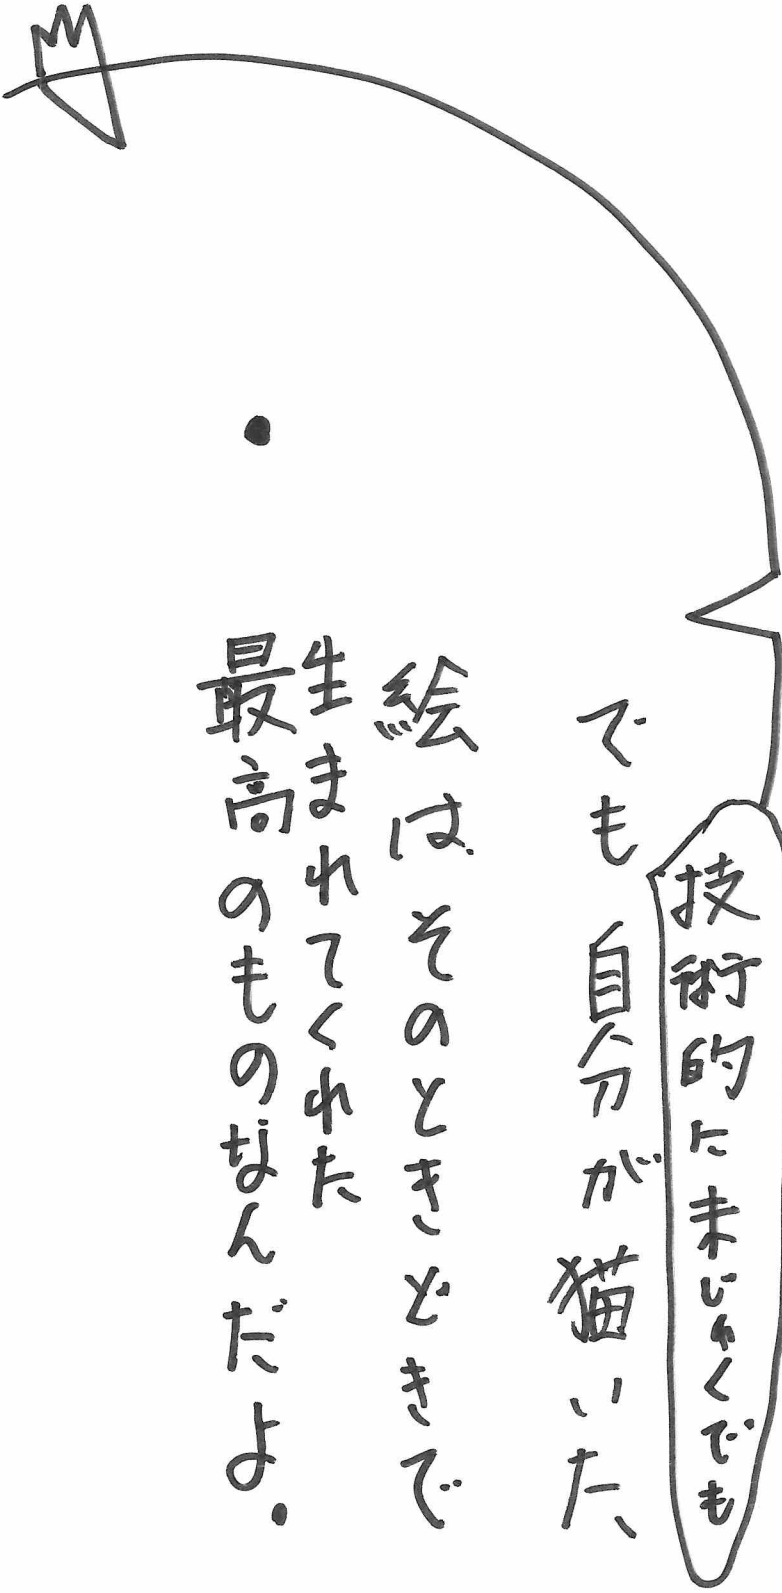 技術的に未じゅくでも
でも自分が猫いた、
絵はそのときどきで
生まれてくれた
最高のものなんだよ.